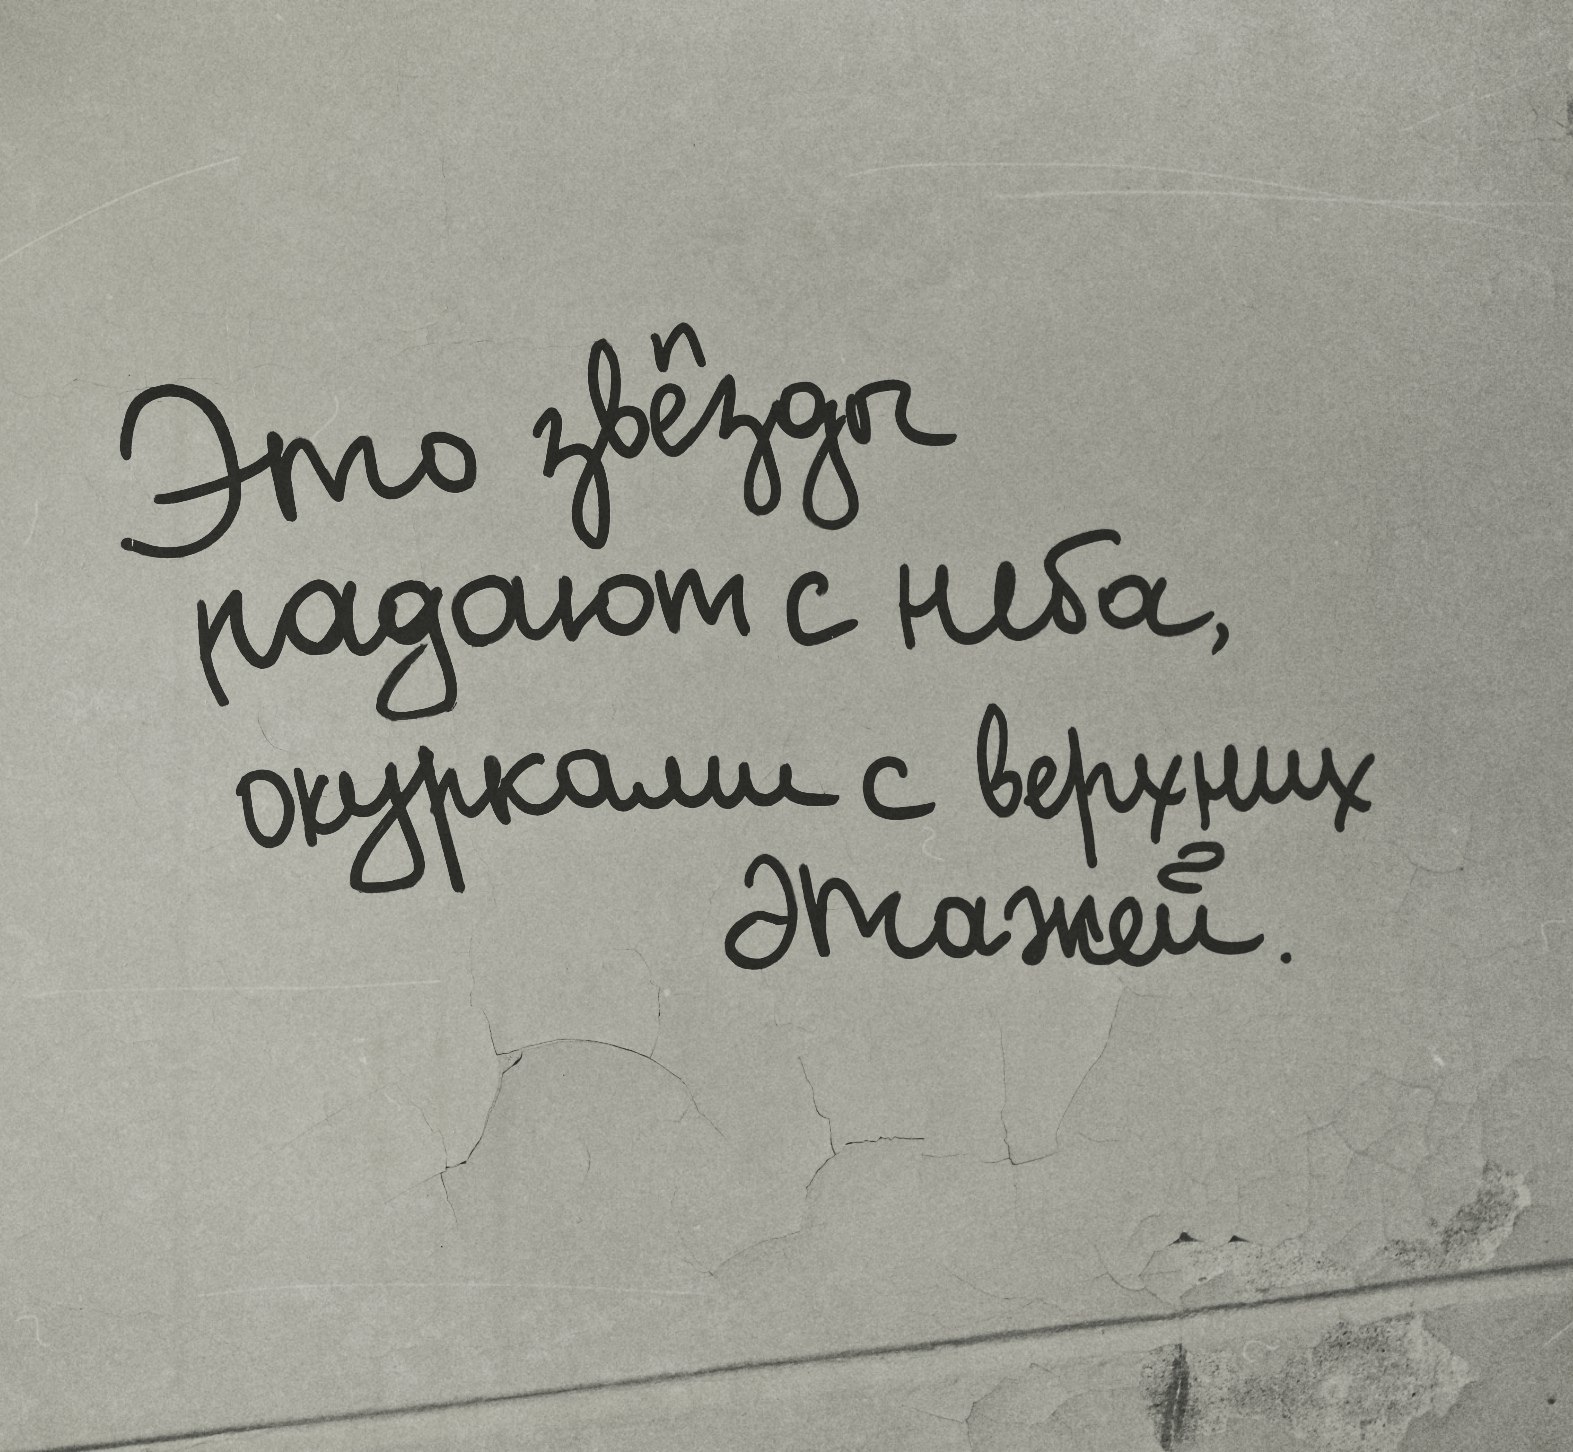 Это звёзды
падают с неба,
окурками с верхних
этажей.